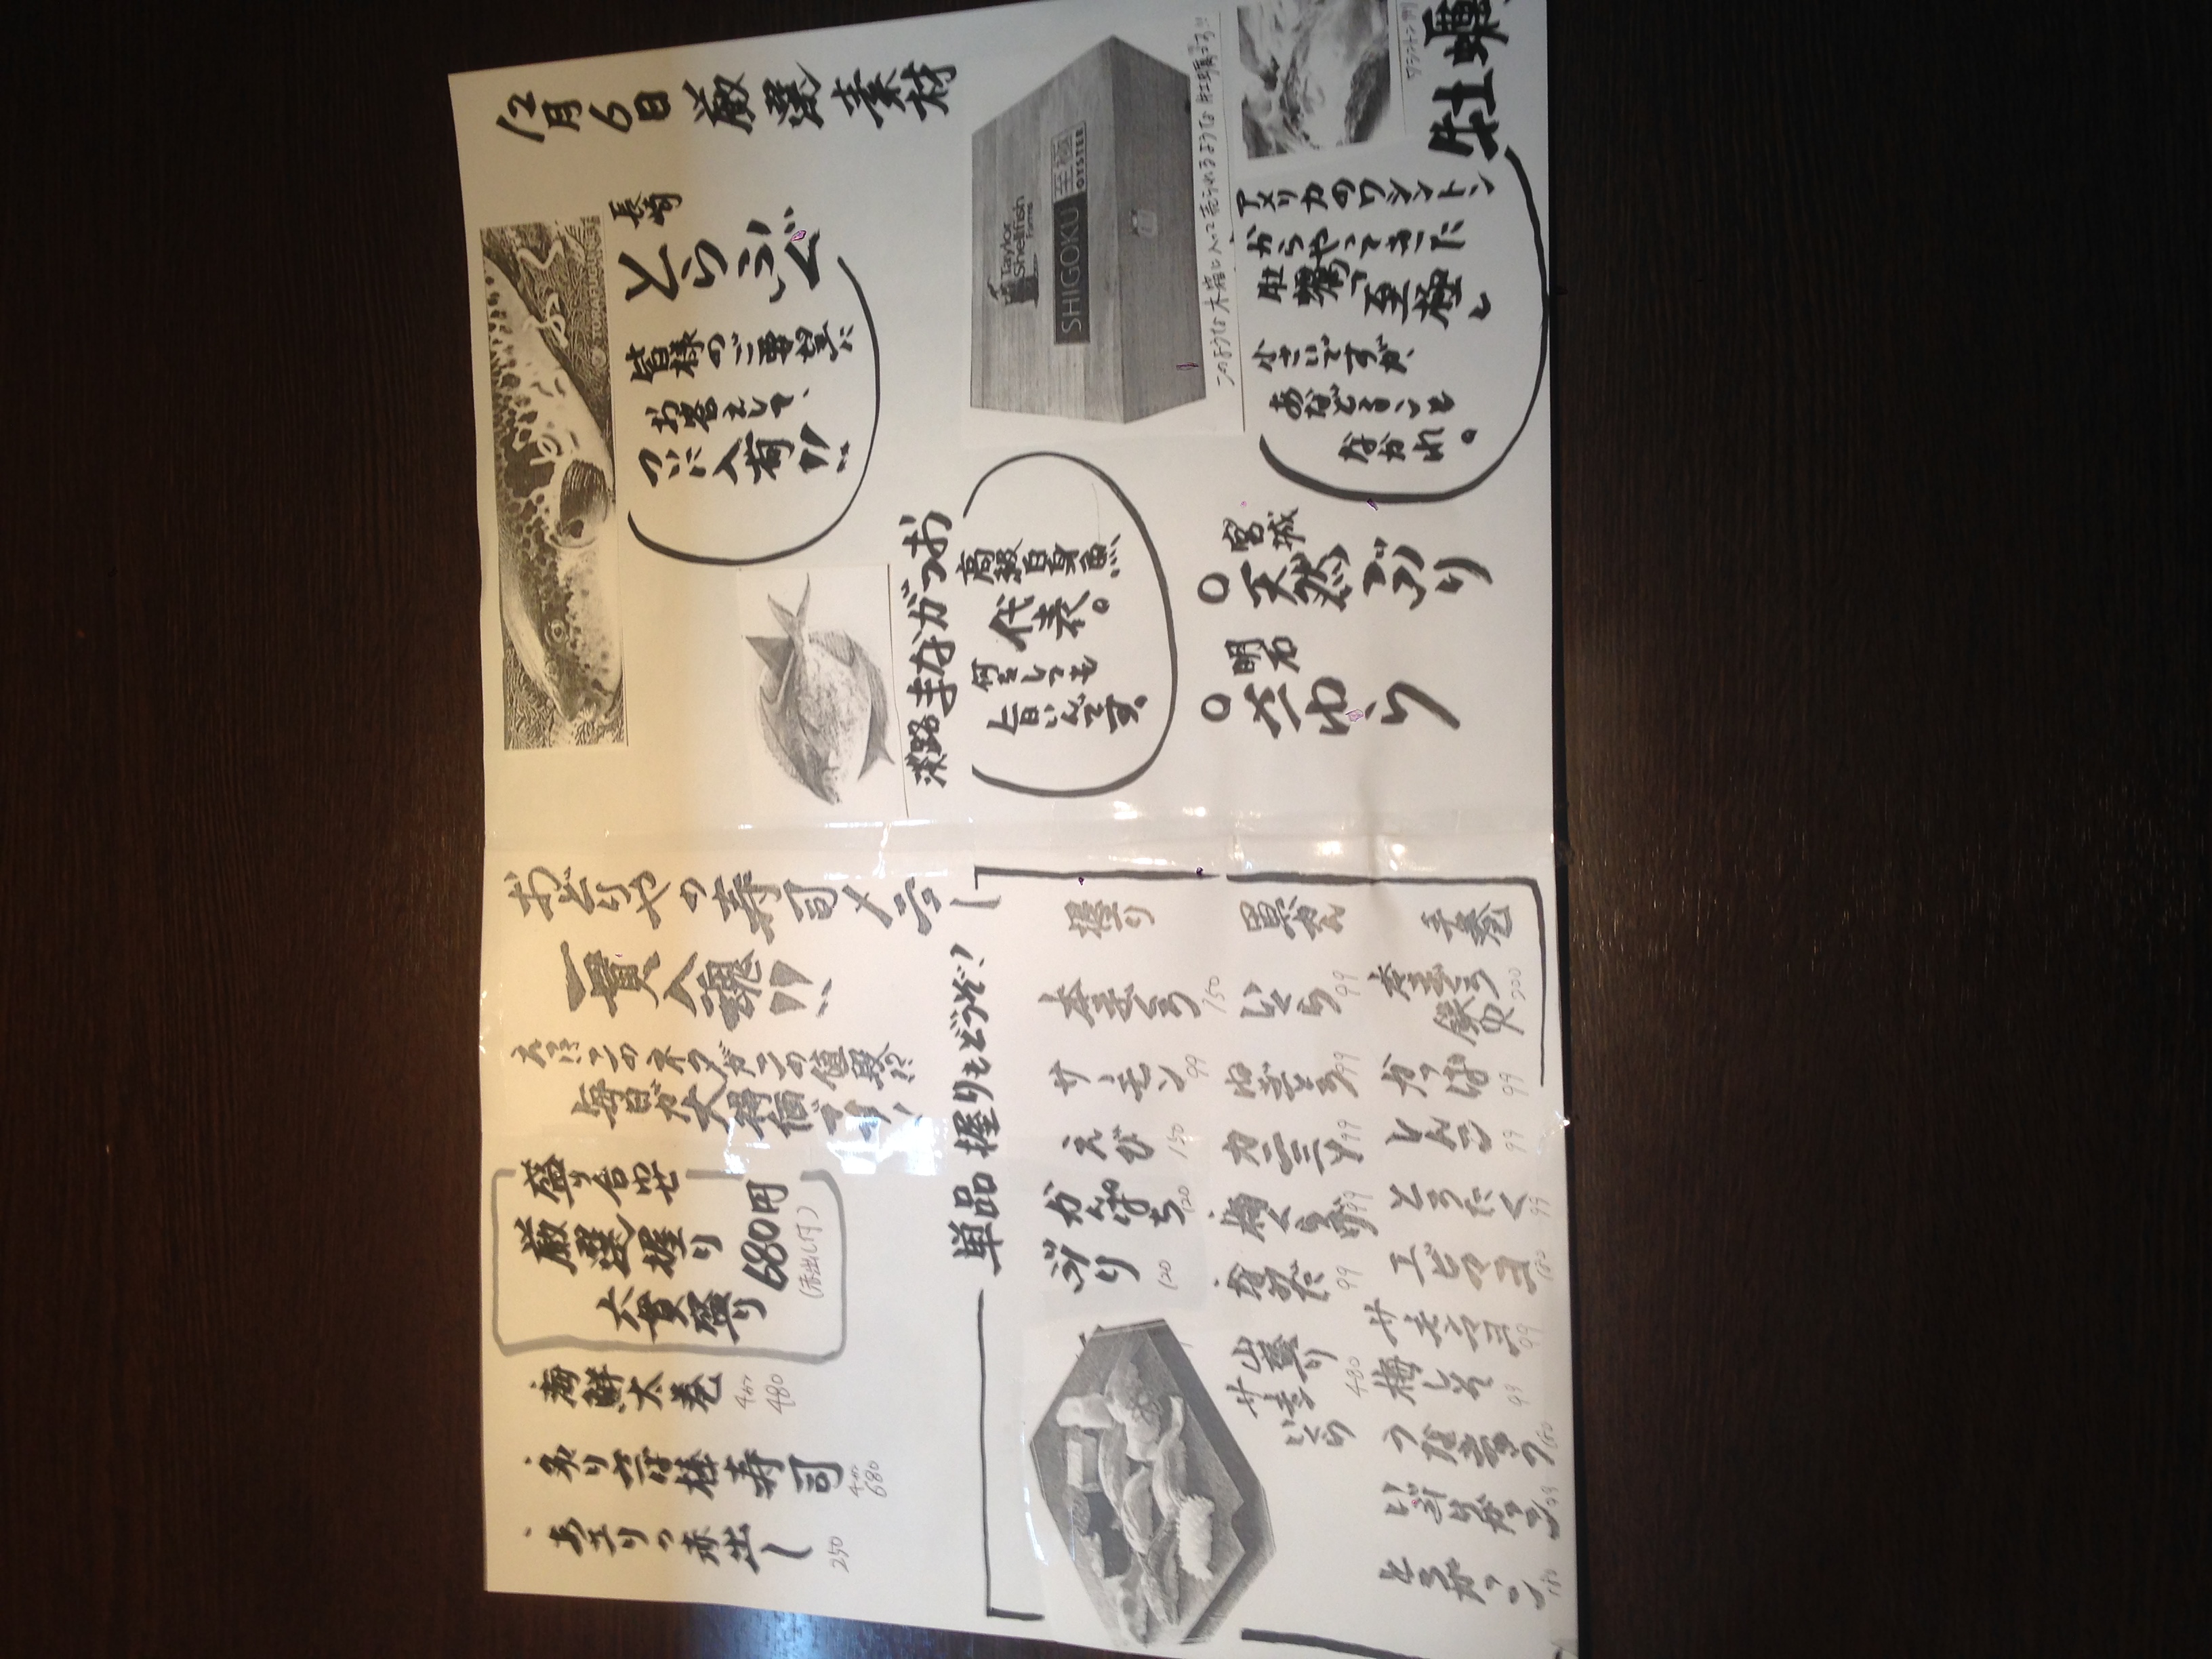 12月6日 厳選素材
長崎
とらふぐ
皆様のご要望に
お答えして、
ついに入荷!!
Taylor
Shellfish
Farms
SHIGOKU
至極
OYSTER
このような木箱に入って売られるような牡蠣です!!
牡蠣
アメリカのワシントン
からやってきた
牡蠣「至極」
小さいですが、
あなどること
なかれ。
淡路 まながつお
高級白身魚
代表。
何をしても
旨いんです。
宮城
○天然ぶり
明石
○さわら
おどりやの寿司メニュー
一貫入魂!!
えっ!?このネタがこの値段!?
毎日が大特価デー!
盛り合わせ
厳選握り
六貫盛り
680円
(赤出し付)
・海鮮太巻 480
・炙りさば棒寿司 680
・あさりの赤出し 250
単品握りもどうぞ!
握り
本まぐろ 150
サーモン 99
えび 150
かんぱち 120
ぶり 120
軍艦
いくら 99
ねぎとろ 99
カニミソ 99
梅くらげ 99
山盛り
サーモン
いくら
480
手巻
本まぐろ
鉄火 200
かっぱ 99
しんこ 99
とろたく 99
エビマヨ 180
サーモンマヨ 99
梅しそ 99
うなきゅう 180
いぶりがっこ 99
とろがっこ 180